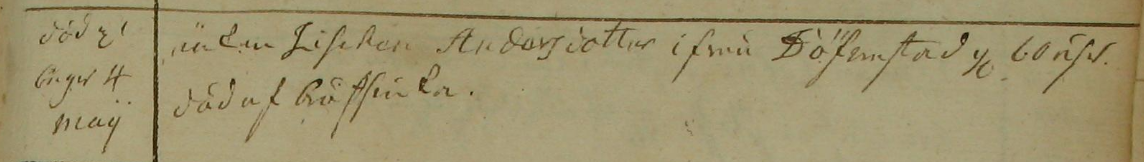 död 2'
begr 4
maij
änkan Lisken Andersdotter ifrån Döfvestad 60 åhr.
död af bröstsiuka.